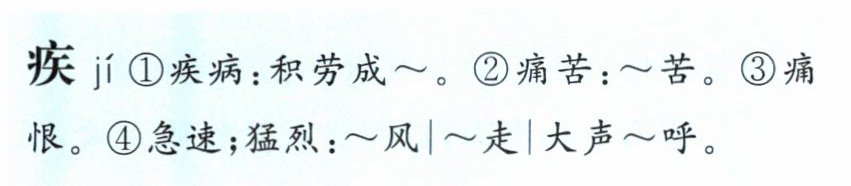 疾 jí ①疾病:积劳成～。②痛苦:～苦。③痛
恨。④急速;猛烈:～风|～走|大声～呼。